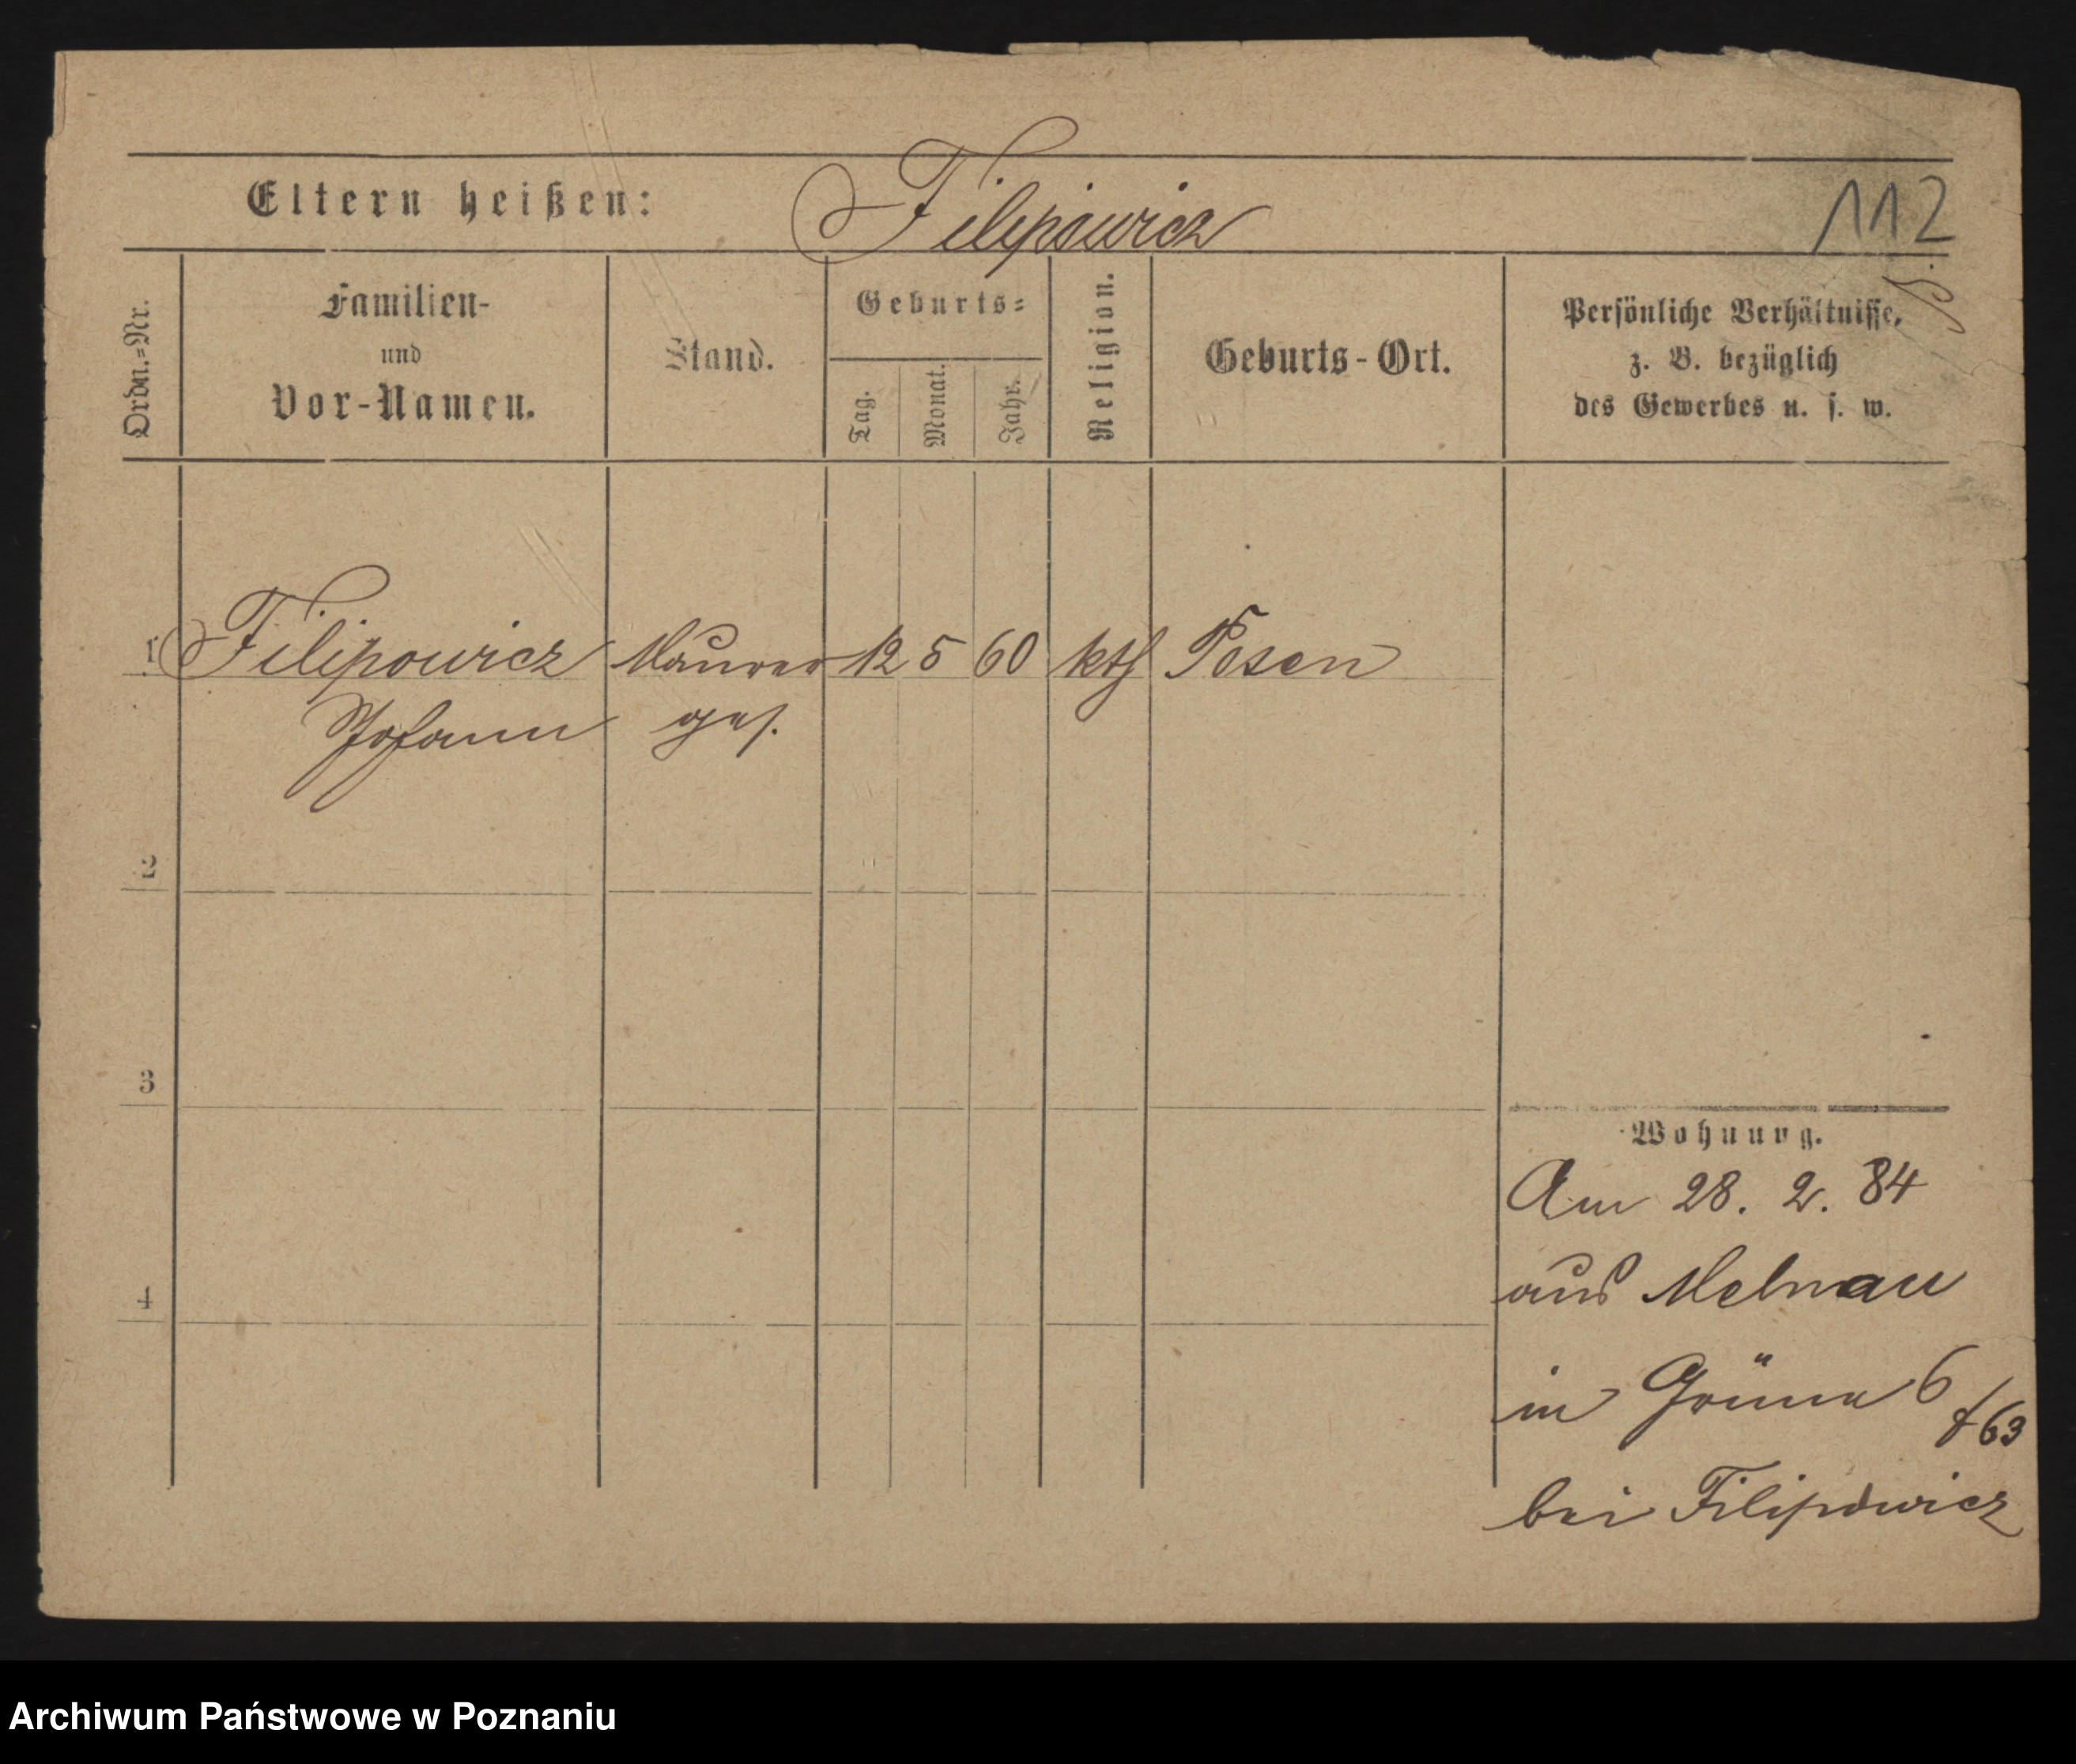 Eltern heißen: Filipowicz
112
Ordn.=Nr.
Familien-
und
Vor-Namen.
Stand.
Geburts=
Tag.
Monat.
Jahr.
Religion.
Geburts-Ort.
Persönliche Verhältnisse,
z. B. bezüglich
des Gewerbes u. s. w.
1 Filipowicz Maurer 12 5 60 kth Posen
Johann ges.
2
3
Wohnung.
Am 28. 2. 84
aus Melnau
4
in Grüne 6
f 63
bei Filipowicz
Archiwum Państwowe w Poznaniu